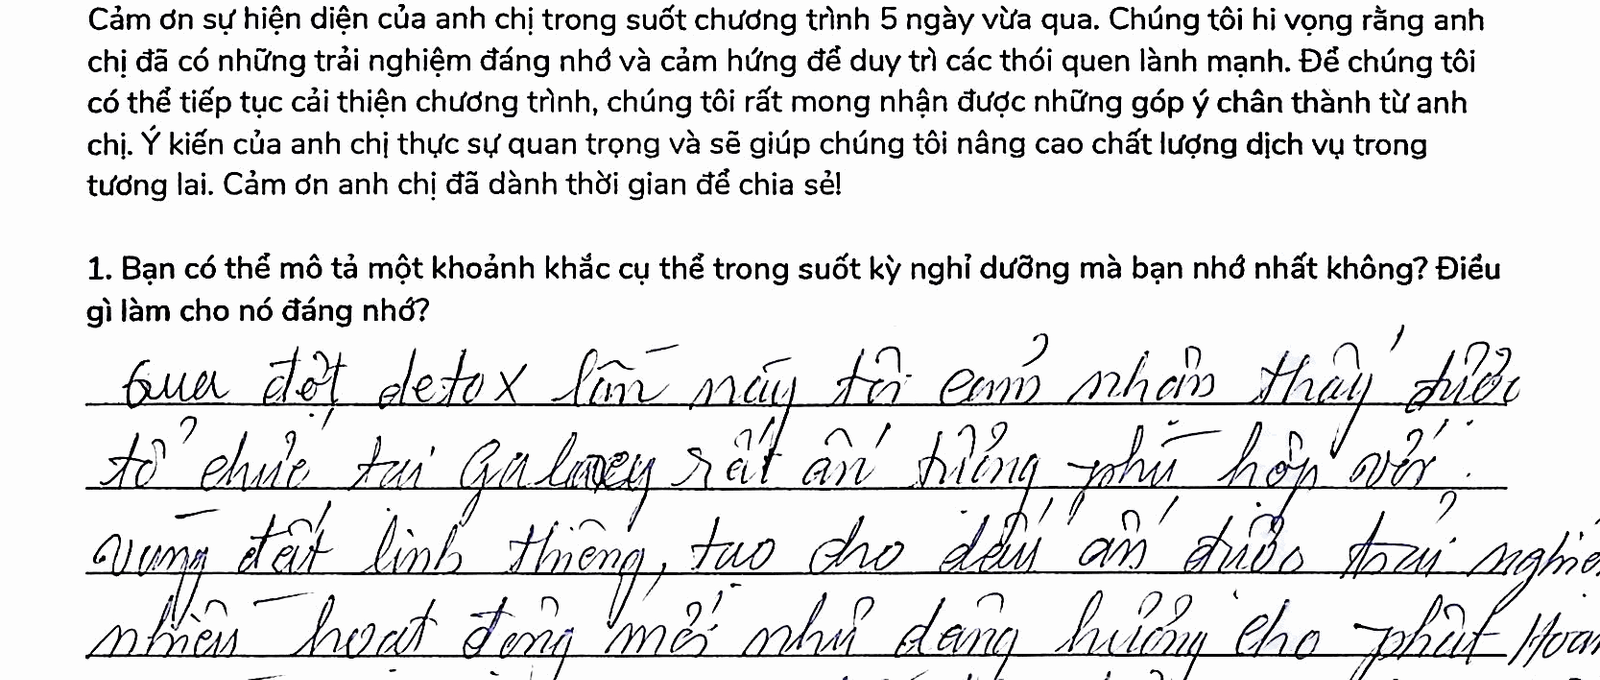 Cảm ơn sự hiện diện của anh chị trong suốt chương trình 5 ngày vừa qua. Chúng tôi hi vọng rằng anh
chị đã có những trải nghiệm đáng nhớ và cảm hứng để duy trì các thói quen lành mạnh. Để chúng tôi
có thể tiếp tục cải thiện chương trình, chúng tôi rất mong nhận được những góp ý chân thành từ anh
chị. Ý kiến của anh chị thực sự quan trọng và sẽ giúp chúng tôi nâng cao chất lượng dịch vụ trong
tương lai. Cảm ơn anh chị đã dành thời gian để chia sẻ!
1. Bạn có thể mô tả một khoảnh khắc cụ thể trong suốt kỳ nghỉ dưỡng mà bạn nhớ nhất không? Điều
gì làm cho nó đáng nhớ?
Qua đợt detox lần này tôi cảm nhận thấy được
tổ chức tại rất ấn tượng phù hợp với
vùng đất linh thiêng, tạo cho dấu ấn được trải
nhiều hoạt động mới như dâng hương cho phật